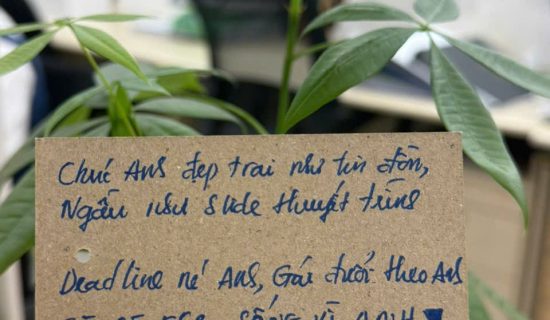 Chúc Anh đẹp trai như tin đồn,
Ngầu như slide thuyết trình
Deadline né Anh, Gái đuổi theo Anh